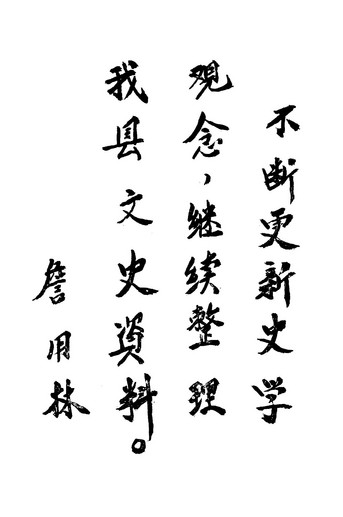 不断更新史学
观念，继续整理
我县文史资料。
詹用林